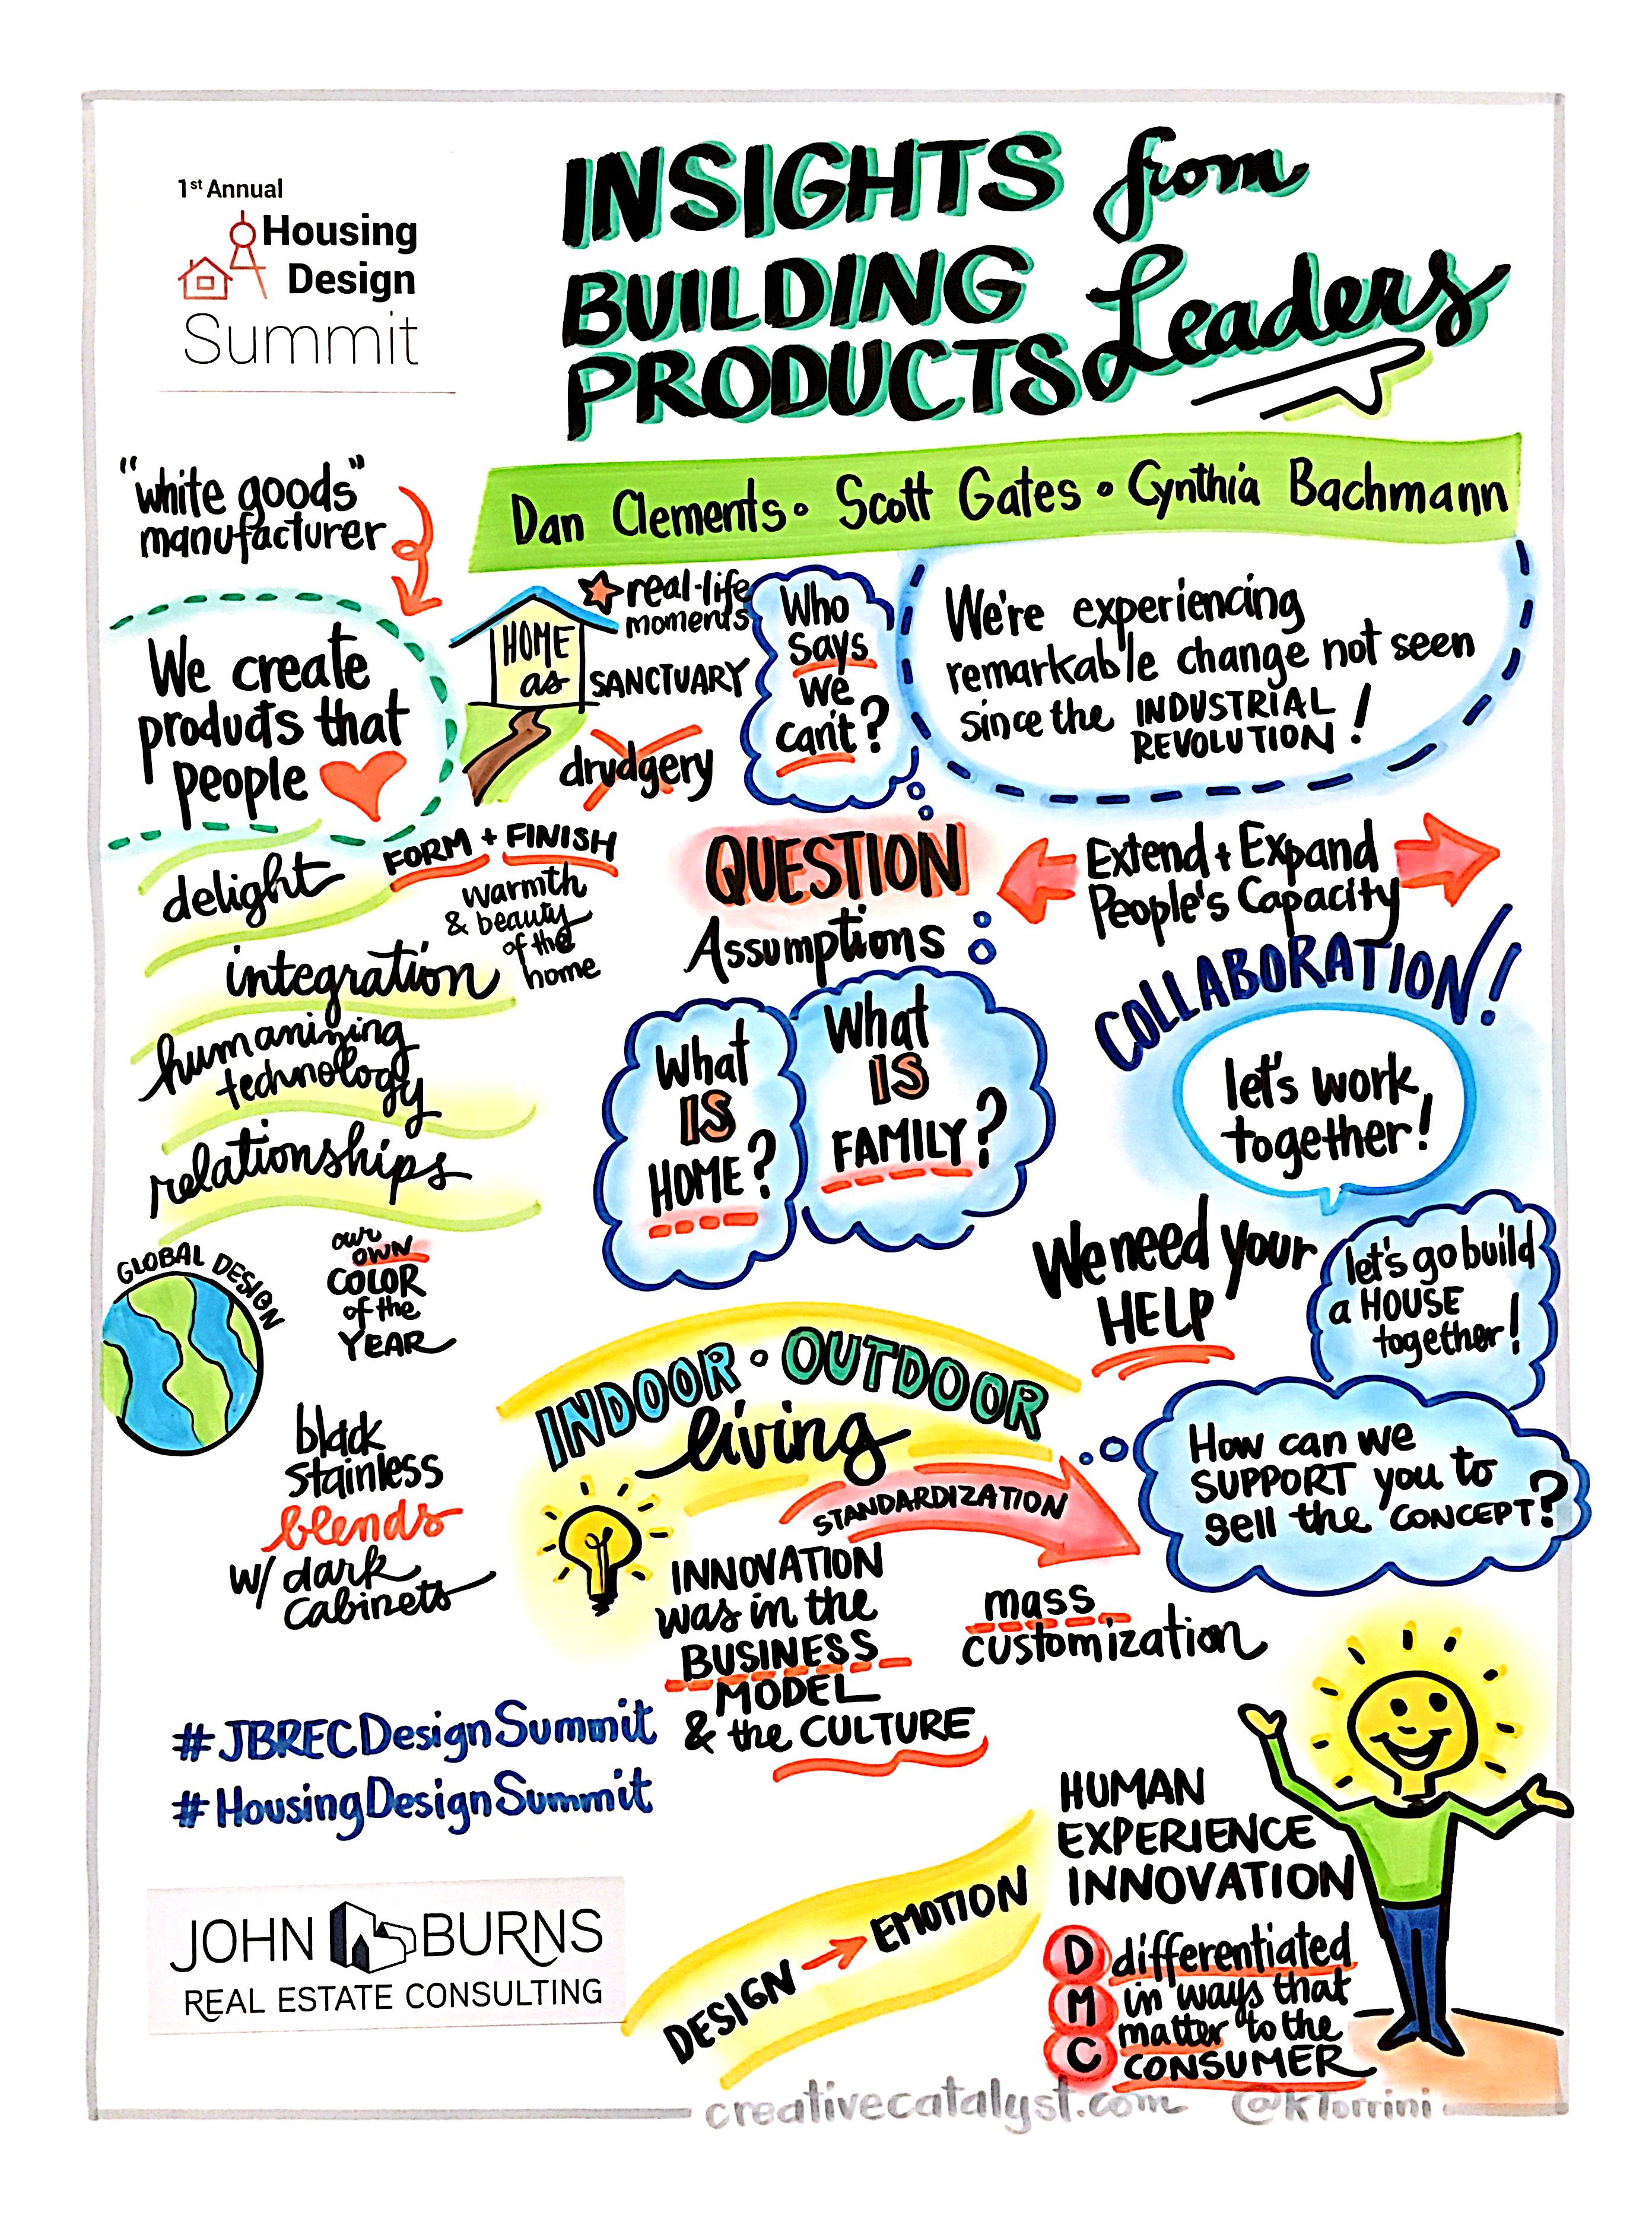 1st Annual
Housing
Design
Summit
INSIGHTS from
BUILDING
PRODUCTS Leaders
Dan Clements • Scott Gates • Cynthia Bachmann
"white goods"
manufacturer
We create
products that
people
HOME
as
SANCTUARY
real-life
moments
drudgery
Who
says
we
can't?
We're experiencing
remarkable change not seen
since the INDUSTRIAL
REVOLUTION!
delight
FORM + FINISH
warmth
& beauty
of the
home
integration
humanizing
technology
relationships
QUESTION
Assumptions
What
IS
HOME?
What
IS
FAMILY?
Extend + Expand
People's Capacity
COLLABORATION!
let's work
together!
We need your
HELP
let's go build
a HOUSE
together!
How can we
SUPPORT you to
sell the CONCEPT?
GLOBAL DESIGN
our
OWN
COLOR
of the
YEAR
black
stainless
blends
w/ dark
cabinets
INDOOR • OUTDOOR
living
STANDARDIZATION
mass
customization
INNOVATION
was in the
BUSINESS
MODEL
& the CULTURE
#JBRECDesignSummit
#HousingDesignSummit
JOHN BURNS
REAL ESTATE CONSULTING
DESIGN → EMOTION
HUMAN
EXPERIENCE
INNOVATION
D differentiated
M in ways that
matter to the
C CONSUMER
creativecatalyst.com @kTorrini